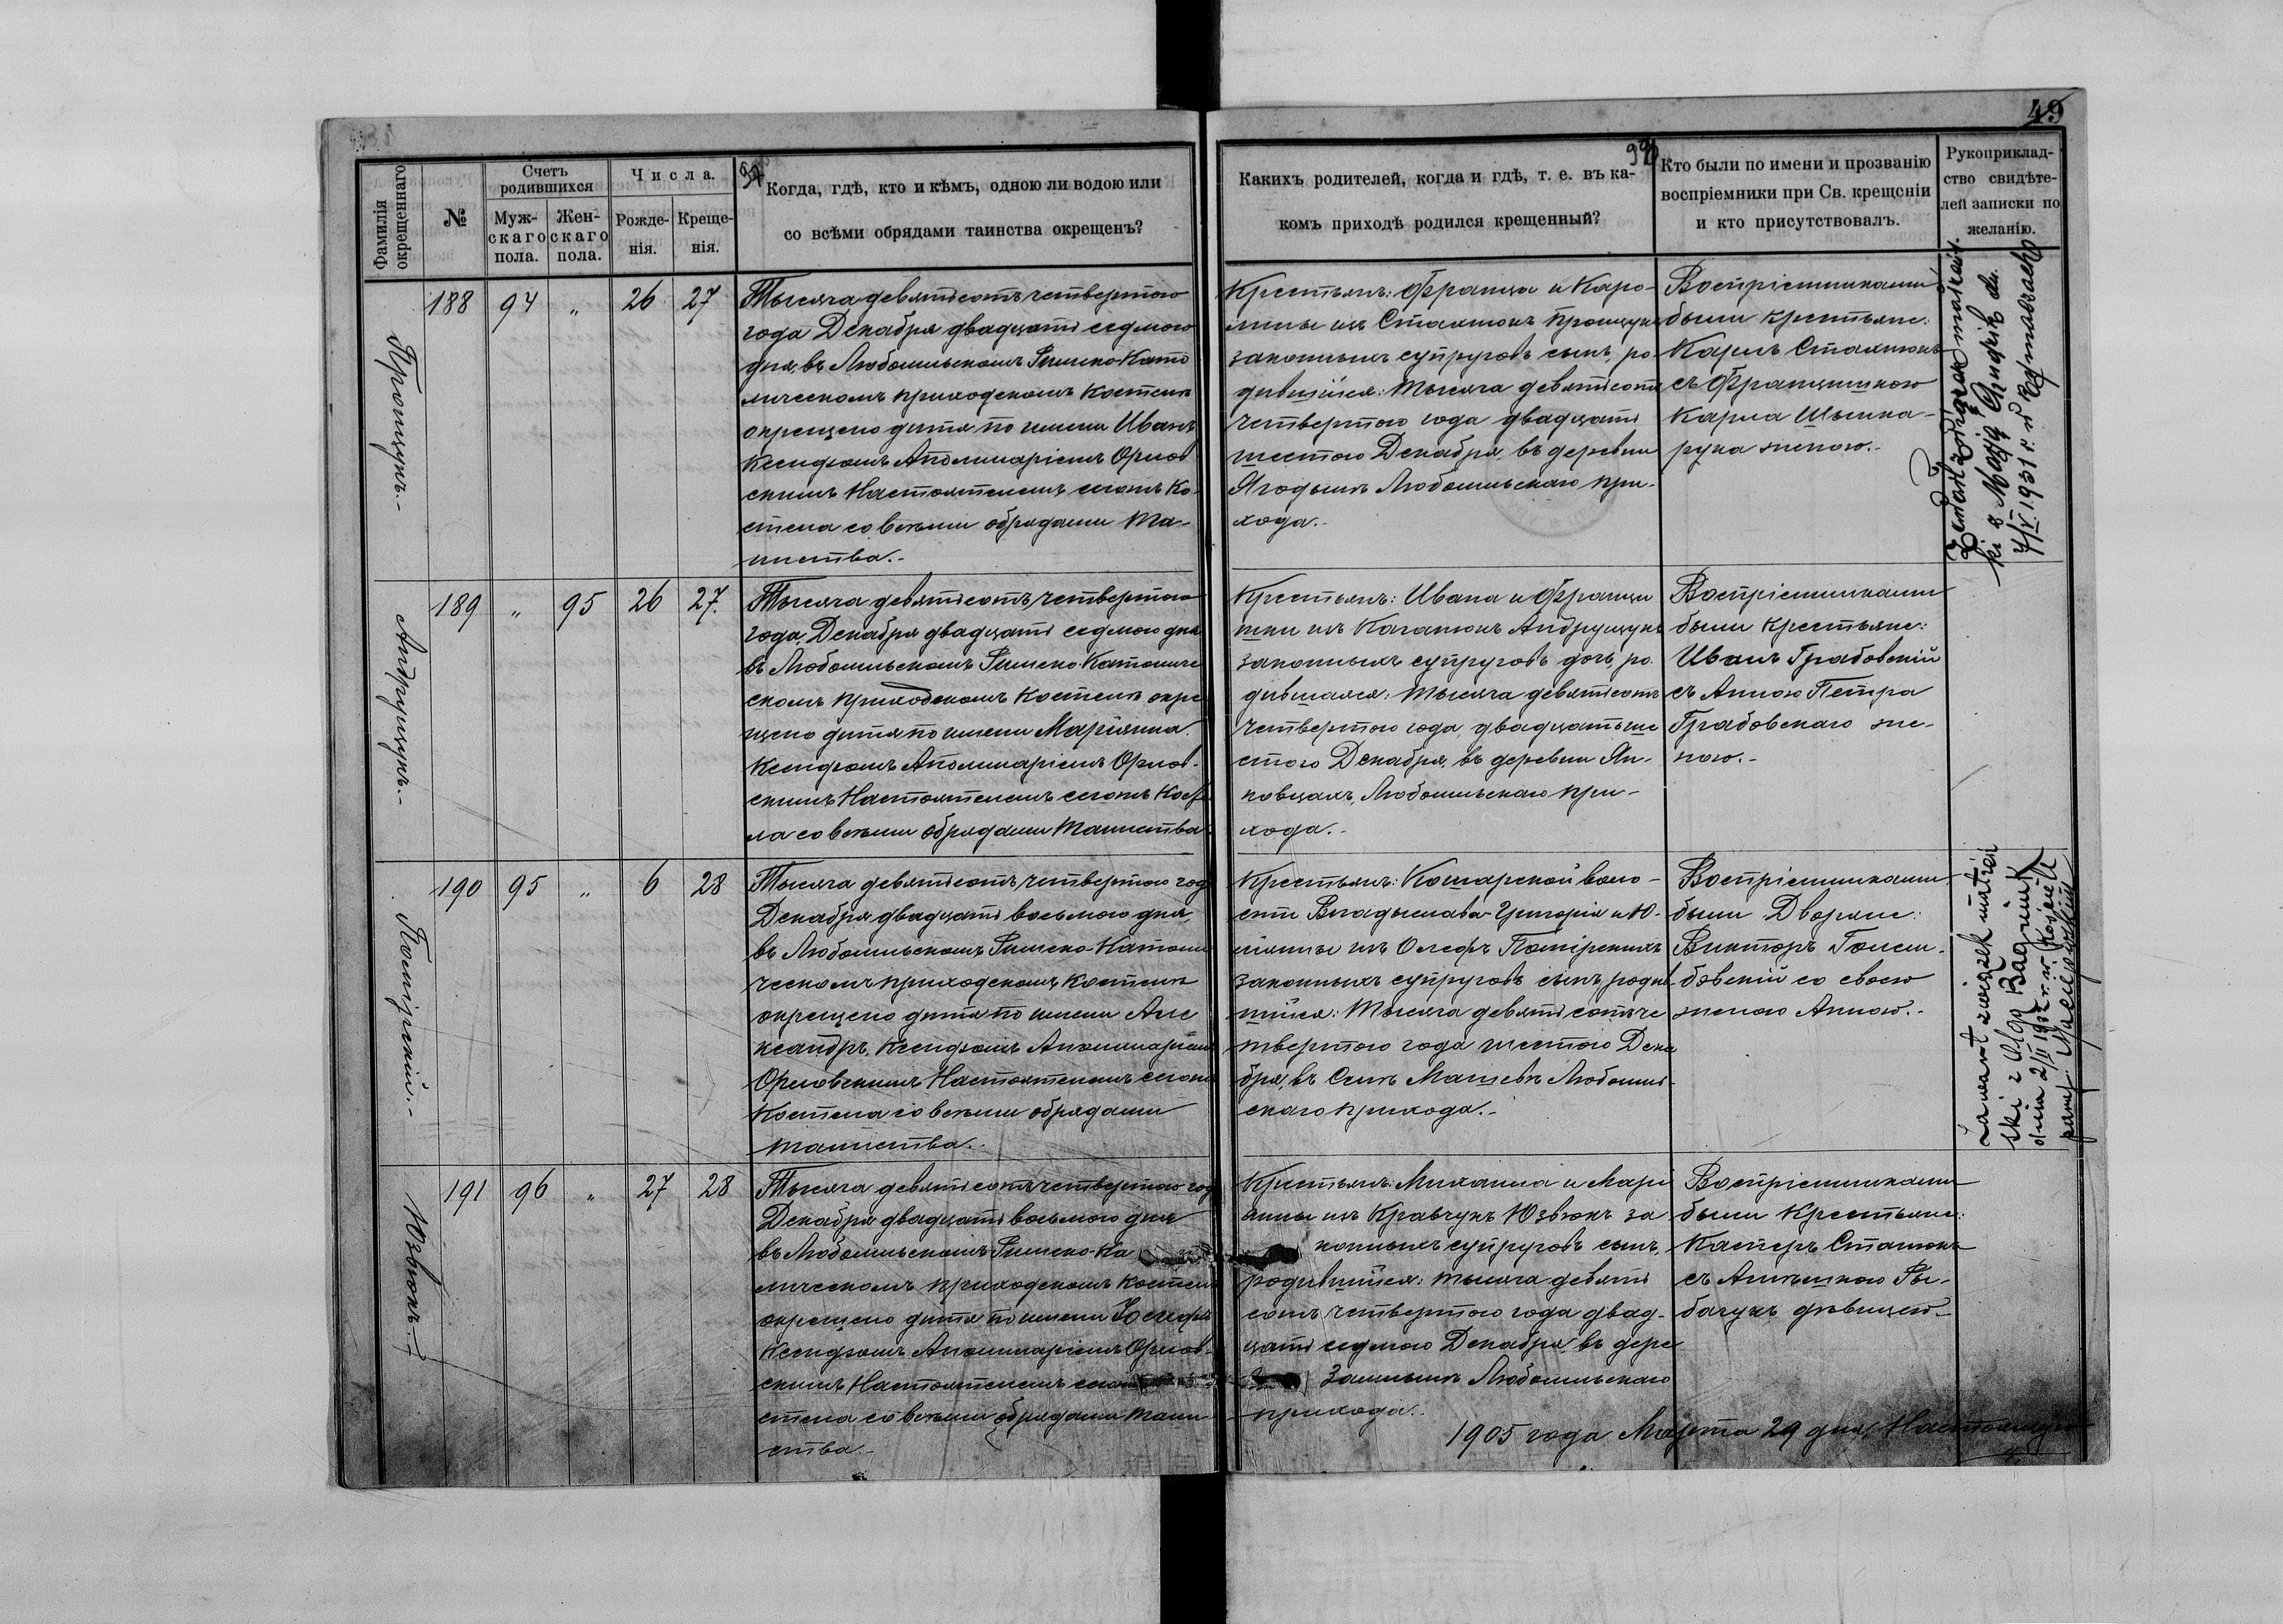 49
Фамилія окрещеннаго
№
Счетъ родившихся
Муж-
скаго
пола.
Жен-
скаго
пола.
Числа.
Рожде-
нія.
Креще-
нія.
Когда, гдѣ, кто и кѣмъ, одною ли водою или
со всѣми обрядами таинства окрещенъ?
Какихъ родителей, когда и гдѣ, т. е. въ ка-
комъ приходѣ родился крещенный?
Кто были по имени и прозванію
воспріемники при Св. крещеніи
и кто присутствовалъ.
Рукоприклад-
ство свидѣте-
лей записки по
желанію.
Прощукъ.-
188 94 „ 26 27
Тысяча девятьсотъ четвертого
года Декабря двадцать седмого
дня, въ Любомльскомъ Римско-Като
лическомъ приходскомъ костелѣ
окрещено дитя по имени Иванъ
Ксендзомъ Аполинаріемъ Орлов
скимъ Настоятелемъ сегожъ Ко
стела со всѣми обрядами Та-
инства.-
Крестьянъ: Франца и Каро-
лины изъ Сталюкъ Прощукъ
законныхъ супруговъ сынъ, ро
дившійся: тысяча девятьсотъ
четвертого года двадцать
шестого Декабря, въ деревни
Ягодынъ Любомльскаго при-
хода.-
Воспріемниками
были крестьяне:
Карлъ Сталюкъ
съ Францишкою
Карла
рука женою.-
1931 r.
Андрущукъ.-
189 „ 95 26 27.
Тысяча девятьсотъ четвертого
года Декабря двадцать седмого дня
въ Любомльскомъ Римско-Католиче
скомъ приходскомъ костелѣ окре
щено дитя по имени Маріянна
Ксендзомъ Аполинаріемъ Орлов-
скимъ Настоятелемъ сегожъ Косте
ла со всѣми обрядами Таинства
Крестьянъ: Ивана и Францы
шки изъ Качанюкъ Андрущукъ
законныхъ супруговъ дочь, ро
дившаяся: тысяча девятьсотъ
четвертого года, двадцать ше
стого Декабря, въ деревни Ян-
ковцахъ, Любомльскаго при-
хода.-
Воспріемниками
были крестьяне:
Иванъ Грабовскій
съ Анною Петра
Грабовскаго же-
ною.-
190 95 „ 6 28
Тысяча девятьсотъ четвертого год
Декабря двадцать восьмого дня,
въ Любомльскомъ Римско-Католи
ческомъ приходскомъ костелѣ
окрещено дитя по имени Але
ксандръ, Ксендзомъ Аполинаріемъ
Орловскимъ Настоятелемъ сегожъ
Костела со всѣми обрядами
таинства.-
Крестьянъ: Кошарской воло-
сти Владыслава-Григорія и Ю-
ліянны изъ
законныхъ супруговъ сынъ, родив
шійся: Тысяча девятьсотъ че
твертого года шестого Дека
бря, въ Селѣ Мацеевѣ Любомль
скаго прихода.-
Воспріемниками
были Дворяне:
Викторъ
со своею
женою Анною.-
Zawarł związek małżeń
ski z Olgą
dnia 2/II 1932 r. w
Юзвюкъ.-
191 96 „ 27 28
Тысяча девятьсотъ четвертого год
Декабря двадцать восьмого дня
въ Любомльскомъ Римско-Ка
лическомъ приходскомъ костелѣ
окрещено дитя по имени Іосифъ
Ксендзомъ Аполинаріемъ Орлов-
скимъ Настоятелемъ сегожъ
стела со всѣми обрядами Таин
ства.-
Крестьянъ: Михаила и Марі
анны изъ Кравчукъ Юзвюкъ за
конныхъ супруговъ сынъ,
родившійся: тысяча девять
сотъ четвертого года двад-
цать седмого Декабря, въ дере
Любомльскаго
прихода.-
Воспріемниками
были Крестьяне:
Касперъ Сталюкъ
съ Анѣшкою Ры-
бачукъ дѣвицею.-
1905 года Марта 29 дня,